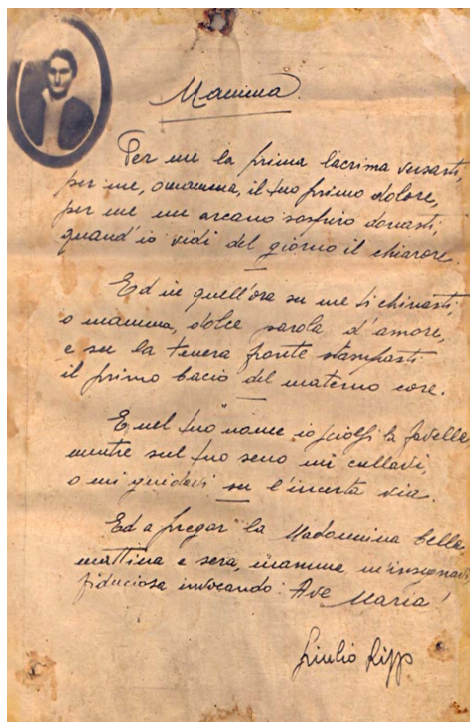 Mamma
Per me la prima lacrima versasti,
per me, o mamma, il tuo primo dolore,
per me un arcano sospiro donasti,
quand'io vidi del giorno il chiarore.
Ed in quell'ora su me ti chinasti
o mamma, dolce parola d'amore,
e su la tenera fronte stampasti
il primo bacio del materno core.
E nel tuo nome io sciolsi la favella
mentre sul tuo seno mi cullavi,
o mi guidavi su l'incerta via.
Ed a pregar la Madonnina bella
mattina e sera, mamma, m'insegnavi
fiduciosa invocando: Ave Maria!
Giulio